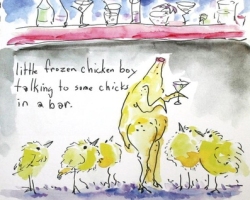 little frozen chicken boy
talking to some chicks
in a bar.